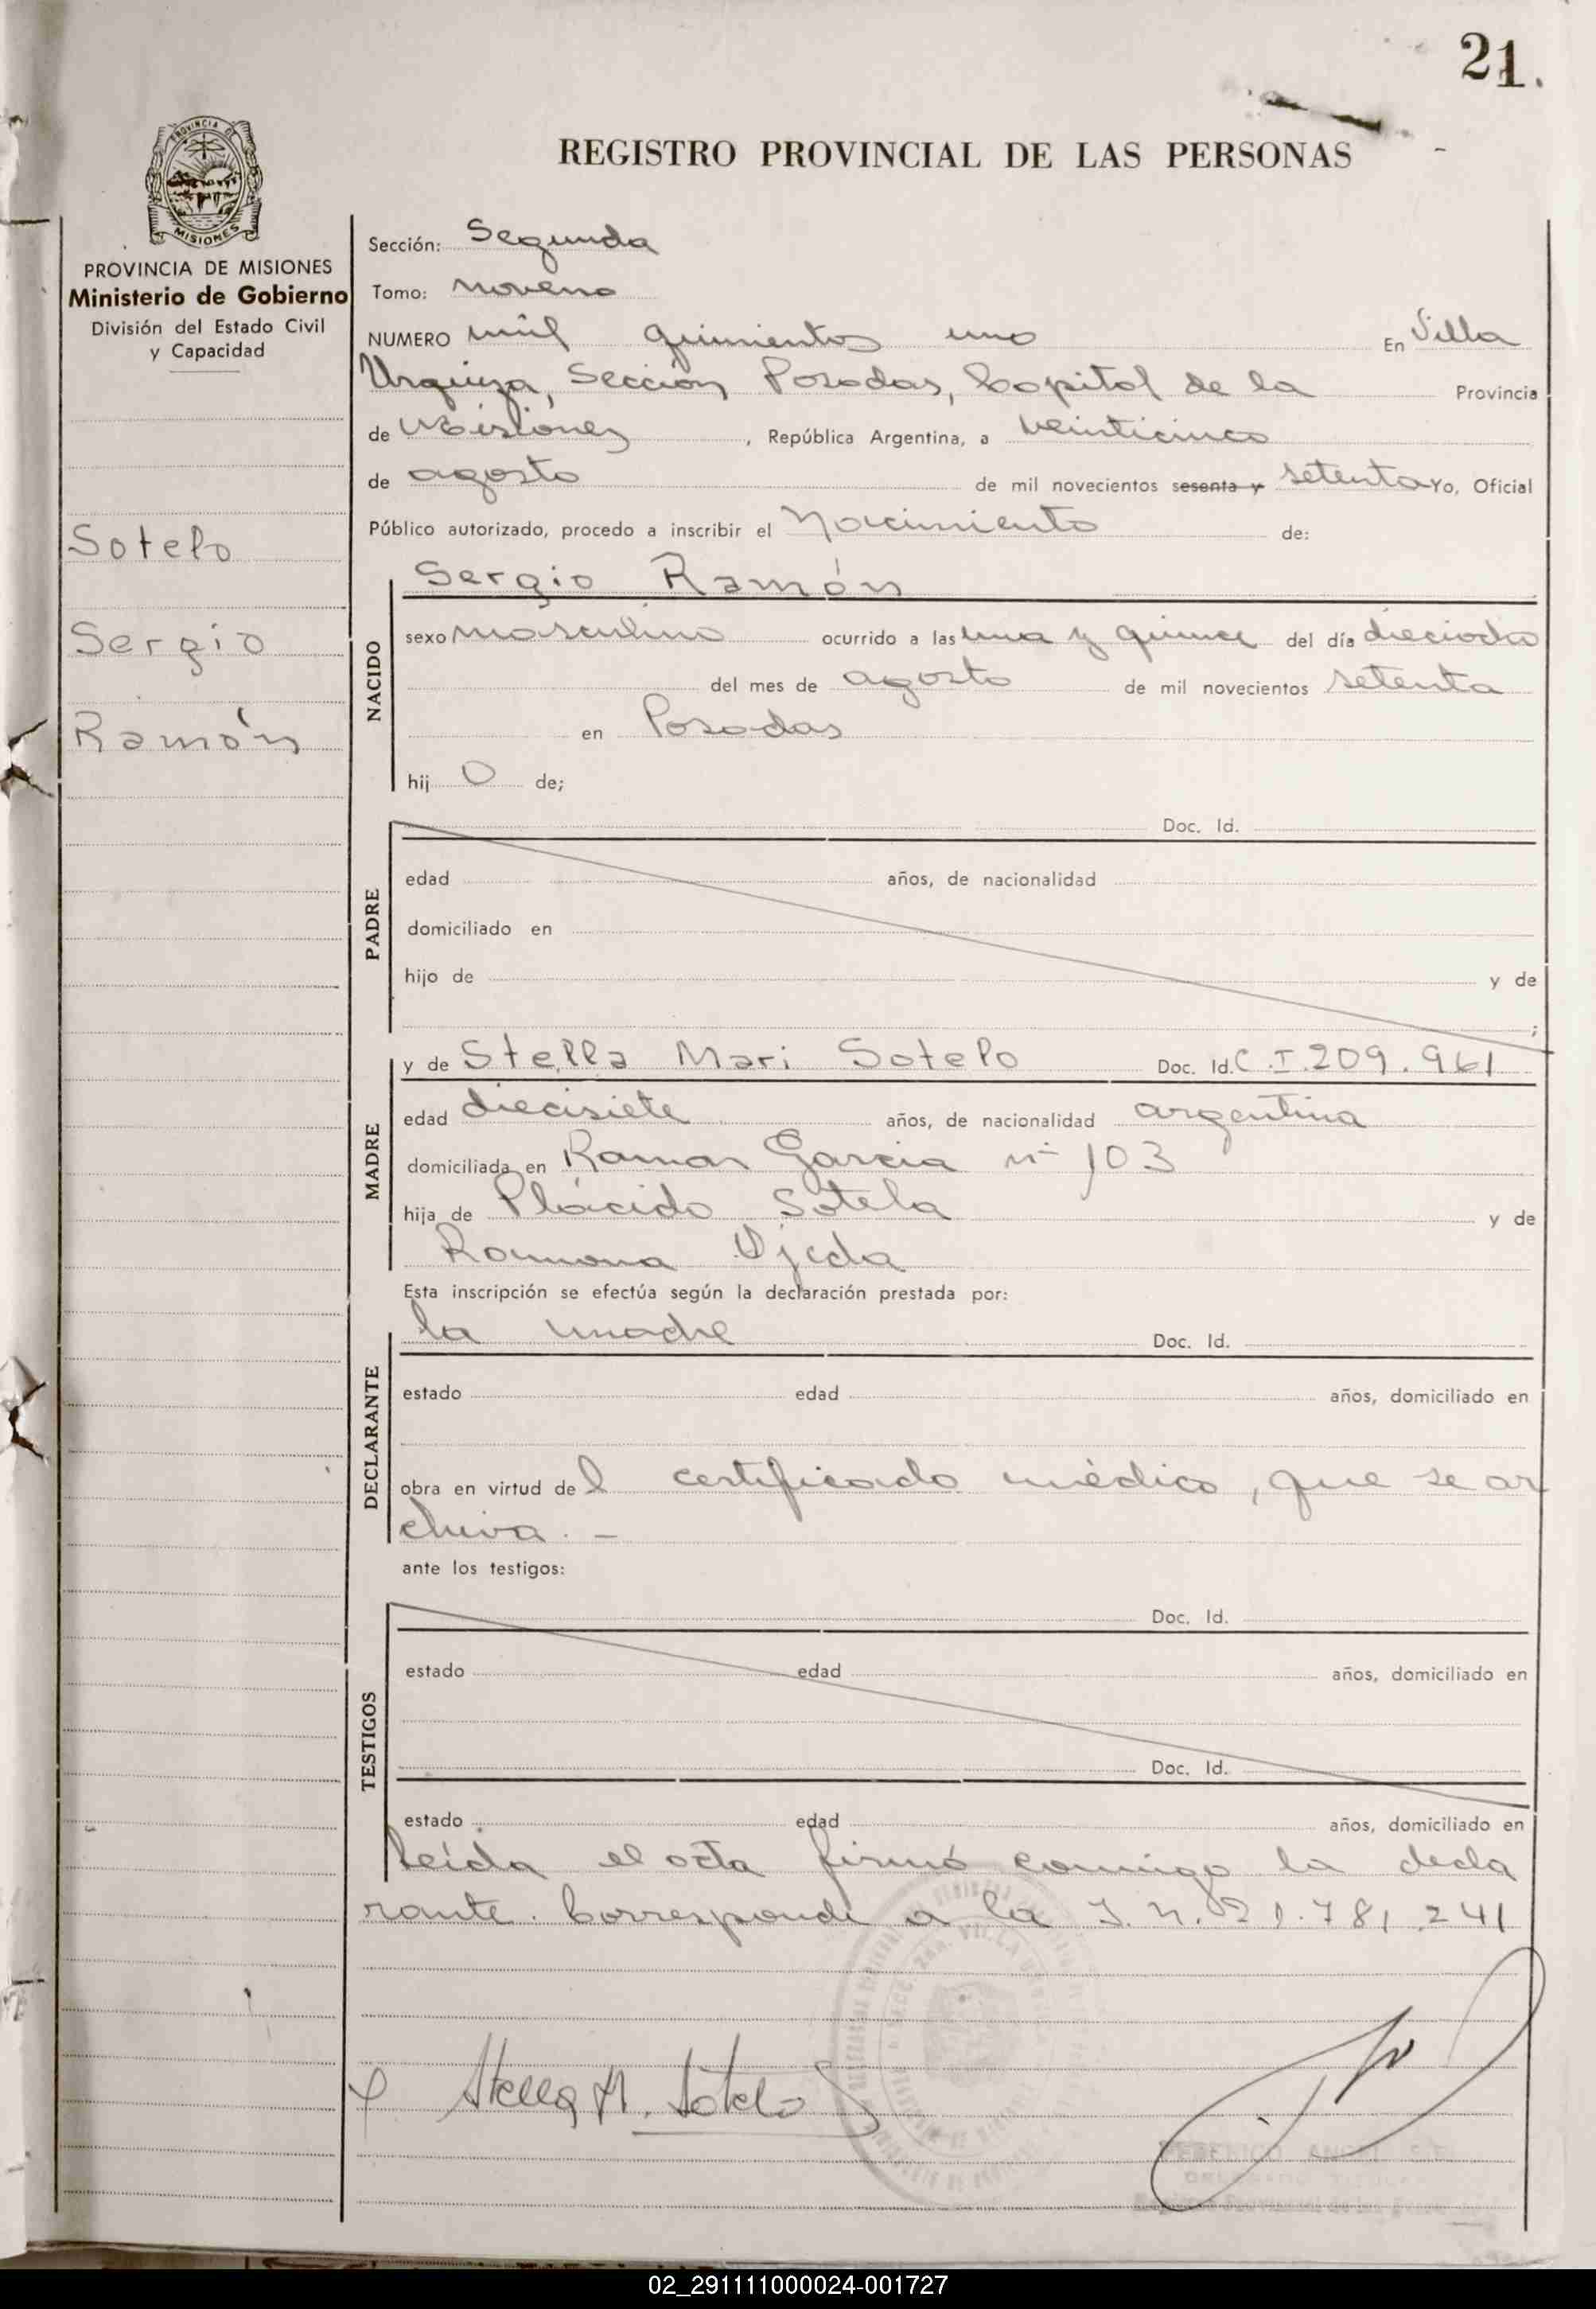 21.
PROVINCIA DE
MISIONES
REGISTRO PROVINCIAL DE LAS PERSONAS
PROVINCIA DE MISIONES
Ministerio de Gobierno
División del Estado Civil
y Capacidad
Sotelo
Sergio
Ramón
Sección: Segunda
Tomo: Noveno
NUMERO mil quinientos uno En Villa
Urquiza, Sección Posadas, Capital de la Provincia
de Misiones, República Argentina, a veinticinco
de agosto de mil novecientos sesenta y setenta Yo, Oficial
Público autorizado, procedo a inscribir el Nacimiento de:
NACIDO
Sergio Ramón
sexo masculino ocurrido a las una y quince del día dieciocho
del mes de agosto de mil novecientos setenta
en Posadas
hij o de;
PADRE
Doc. Id.
edad años, de nacionalidad
domiciliado en
hijo de y de
;
MADRE
y de Stella Mari Sotelo Doc. Id. C.I. 209.961
edad diecisiete años, de nacionalidad argentina
domiciliada en Ramon Garcia nº 103
hija de Plácido Sotelo y de
Ramona Ojeda
Esta inscripción se efectúa según la declaración prestada por:
DECLARANTE
la madre Doc. Id.
estado edad años, domiciliado en
obra en virtud de l certificado médico, que se ar
chiva. -
ante los testigos:
TESTIGOS
Doc. Id.
estado edad años, domiciliado en
Doc. Id.
estado edad años, domiciliado en
Leída el acta firmó conmigo la decla
rante. Corresponde a la I.N. 21.781.241
Stella M. Sotelo
02_291111000024-001727